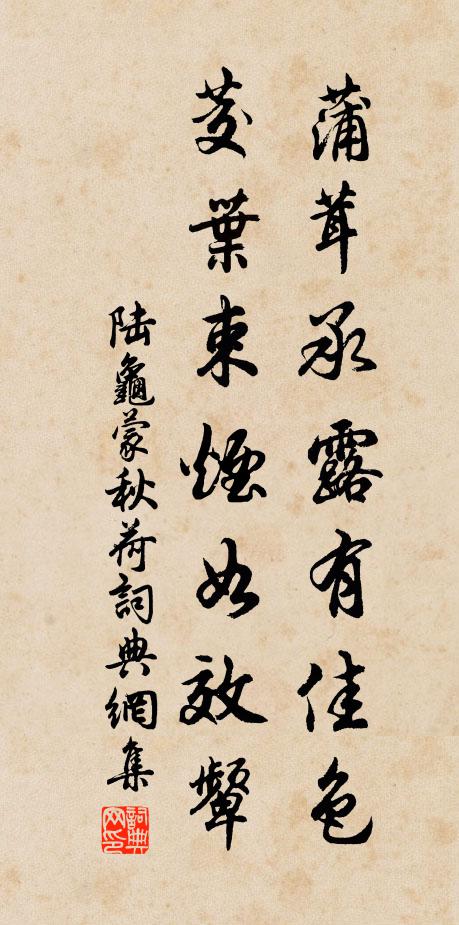 蒲茸承露有佳色
茭葉束煙如效顰
陸龜蒙秋荷詞典網集
詞典网印